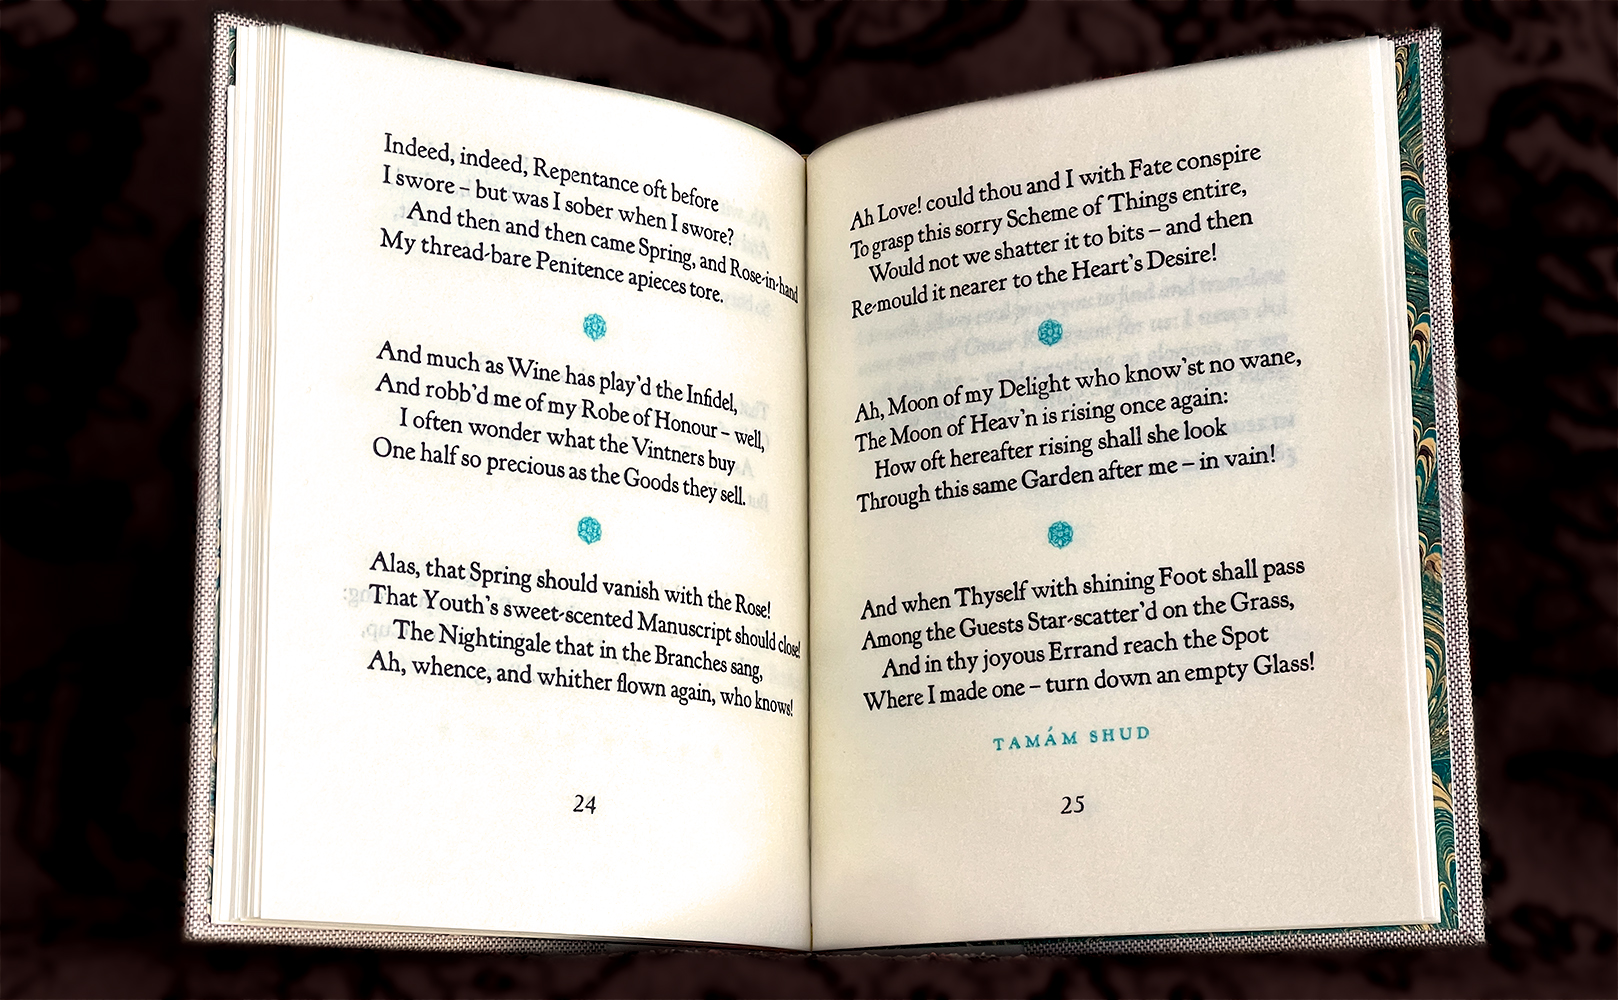 Indeed, indeed, Repentance oft before
I swore – but was I sober when I swore?
And then and then came Spring, and Rose-in-hand
My thread-bare Penitence apieces tore.
And much as Wine has play'd the Infidel,
And robb'd me of my Robe of Honour – well,
I often wonder what the Vintners buy
One half so precious as the Goods they sell.
Alas, that Spring should vanish with the Rose!
That Youth's sweet-scented Manuscript should close!
The Nightingale that in the Branches sang,
Ah, whence, and whither flown again, who knows!
24
Ah Love! could thou and I with Fate conspire
To grasp this sorry Scheme of Things entire,
Would not we shatter it to bits – and then
Re-mould it nearer to the Heart's Desire!
Ah, Moon of my Delight who know'st no wane,
The Moon of Heav'n is rising once again:
How oft hereafter rising shall she look
Through this same Garden after me – in vain!
And when Thyself with shining Foot shall pass
Among the Guests Star-scatter'd on the Grass,
And in thy joyous Errand reach the Spot
Where I made one – turn down an empty Glass!
TAMÁM SHUD
25